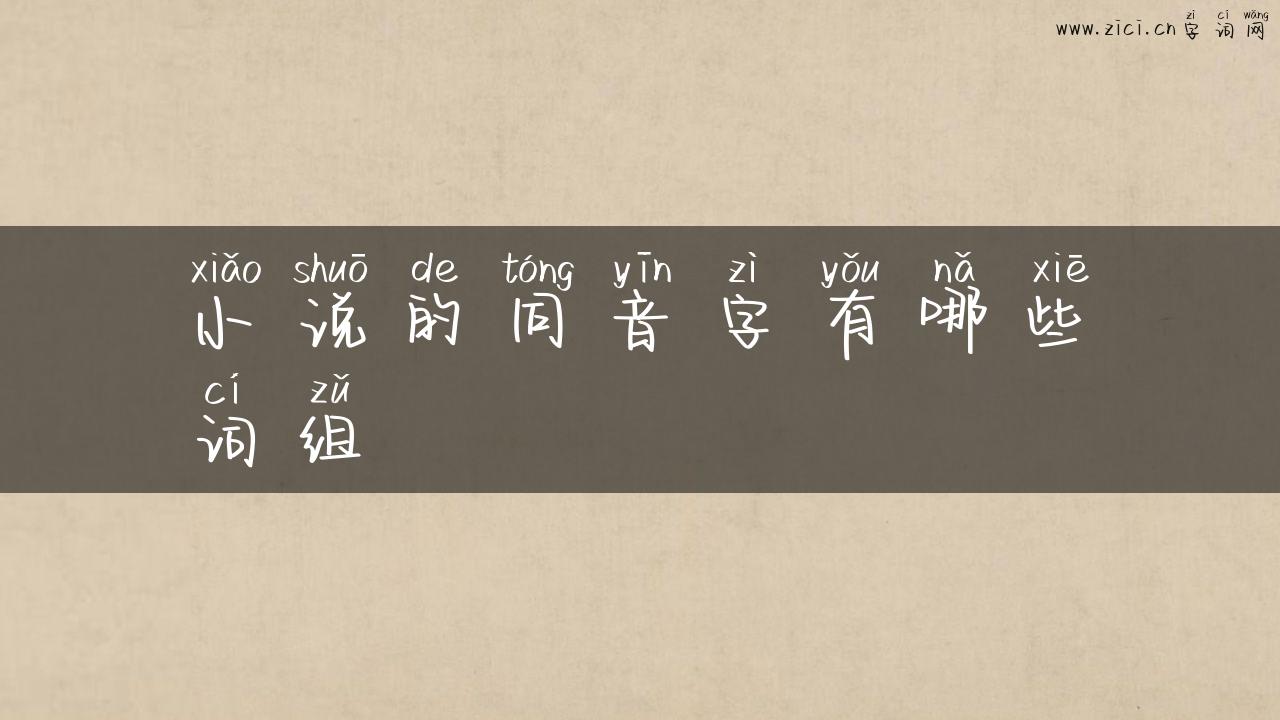 zì cí wǎng
www.zici.cn 字词网
xiǎo shuō de tóng yīn zì yǒu nǎ xiē
小说的同音字有哪些
cí zǔ
词组